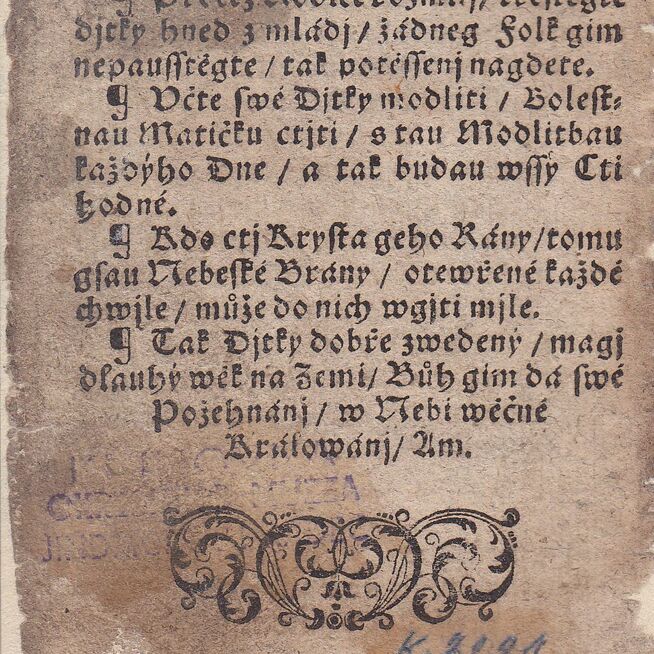 djtky hned z mládj / žádneg Folk gim
nepausstěgte / tak potěssenj nagdete.
¶ Včte swé Djtky modliti / Bolest-
nau Matičku ctjti / s tau Modlitbau
každýho Dne / a tak budau wssý Cti
hodné.
¶ Kdo ctj Krysta geho Rány / tomu
gsau Nebeské Brány / otewřené každé
chwjle / může do nich wgjti mjle.
¶ Tak Djtky dobře zwedený / magj
dlauhý wěk na Zemi / Bůh gim dá swé
Požehnánj / w Nebi wěčné
Králowánj / Am.